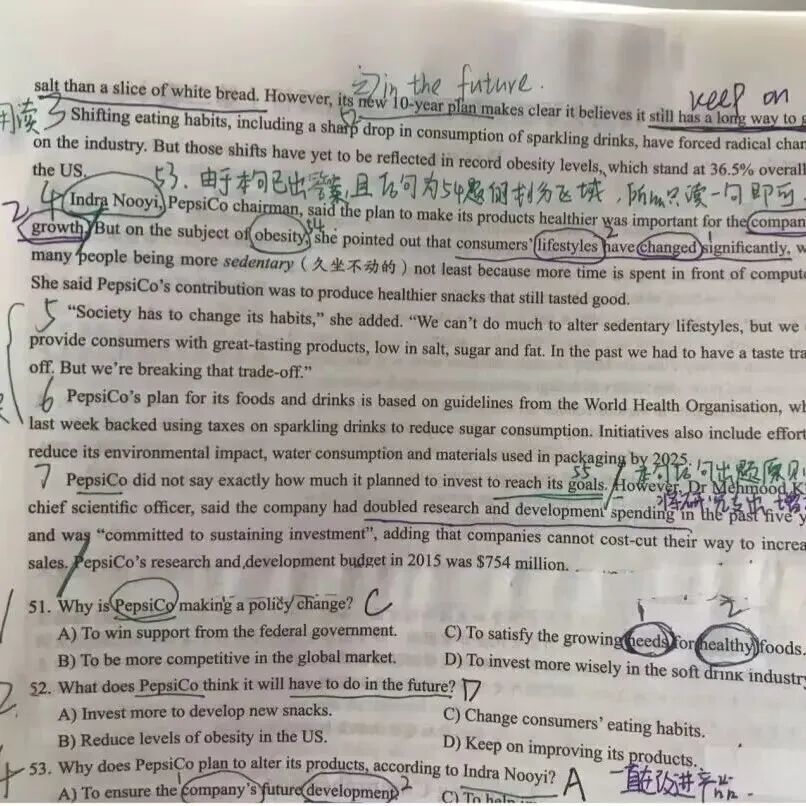 ②in the future.
keep on
salt than a slice of white bread. However, its new 10-year plan makes clear it believes it still has a long way to g
3 Shifting eating habits, including a sharp drop in consumption of sparkling drinks, have forced radical chan
on the industry. But those shifts have yet to be reflected in record obesity levels, which stand at 36.5% overall
the US.
53. 由于本句已出答案,且后句为54题的
4 Indra Nooyi, PepsiCo chairman, said the plan to make its products healthier was important for the compan
2 growth. But on the subject of obesity, she pointed out that consumers' lifestyles have changed significantly, w
54 2 1
many people being more sedentary (久坐不动的) not least because more time is spent in front of compute
She said PepsiCo's contribution was to produce healthier snacks that still tasted good.
5 "Society has to change its habits," she added. "We can't do much to alter sedentary lifestyles, but we
provide consumers with great-tasting products, low in salt, sugar and fat. In the past we had to have a taste tra
off. But we're breaking that trade-off."
6 PepsiCo's plan for its foods and drinks is based on guidelines from the World Health Organisation, wh
last week backed using taxes on sparkling drinks to reduce sugar consumption. Initiatives also include effort
reduce its environmental impact, water consumption and materials used in packaging by 2025.
55
7 PepsiCo did not say exactly how much it planned to invest to reach its goals. However, Dr Mehmood K
chief scientific officer, said the company had doubled research and development spending in the past five y
and was "committed to sustaining investment", adding that companies cannot cost-cut their way to increa
sales. PepsiCo's research and development budget in 2015 was $754 million.
51. Why is PepsiCo making a policy change? C
A) To win support from the federal government.
C) To satisfy the growing needs for healthy foods.
1 2
B) To be more competitive in the global market.
D) To invest more wisely in the soft drink industry
52. What does PepsiCo think it will have to do in the future? D
A) Invest more to develop new snacks.
C) Change consumers' eating habits.
B) Reduce levels of obesity in the US.
D) Keep on improving its products.
53. Why does PepsiCo plan to alter its products, according to Indra Nooyi? A
一直改进产品
A) To ensure the company's future development
1 2
C) To help